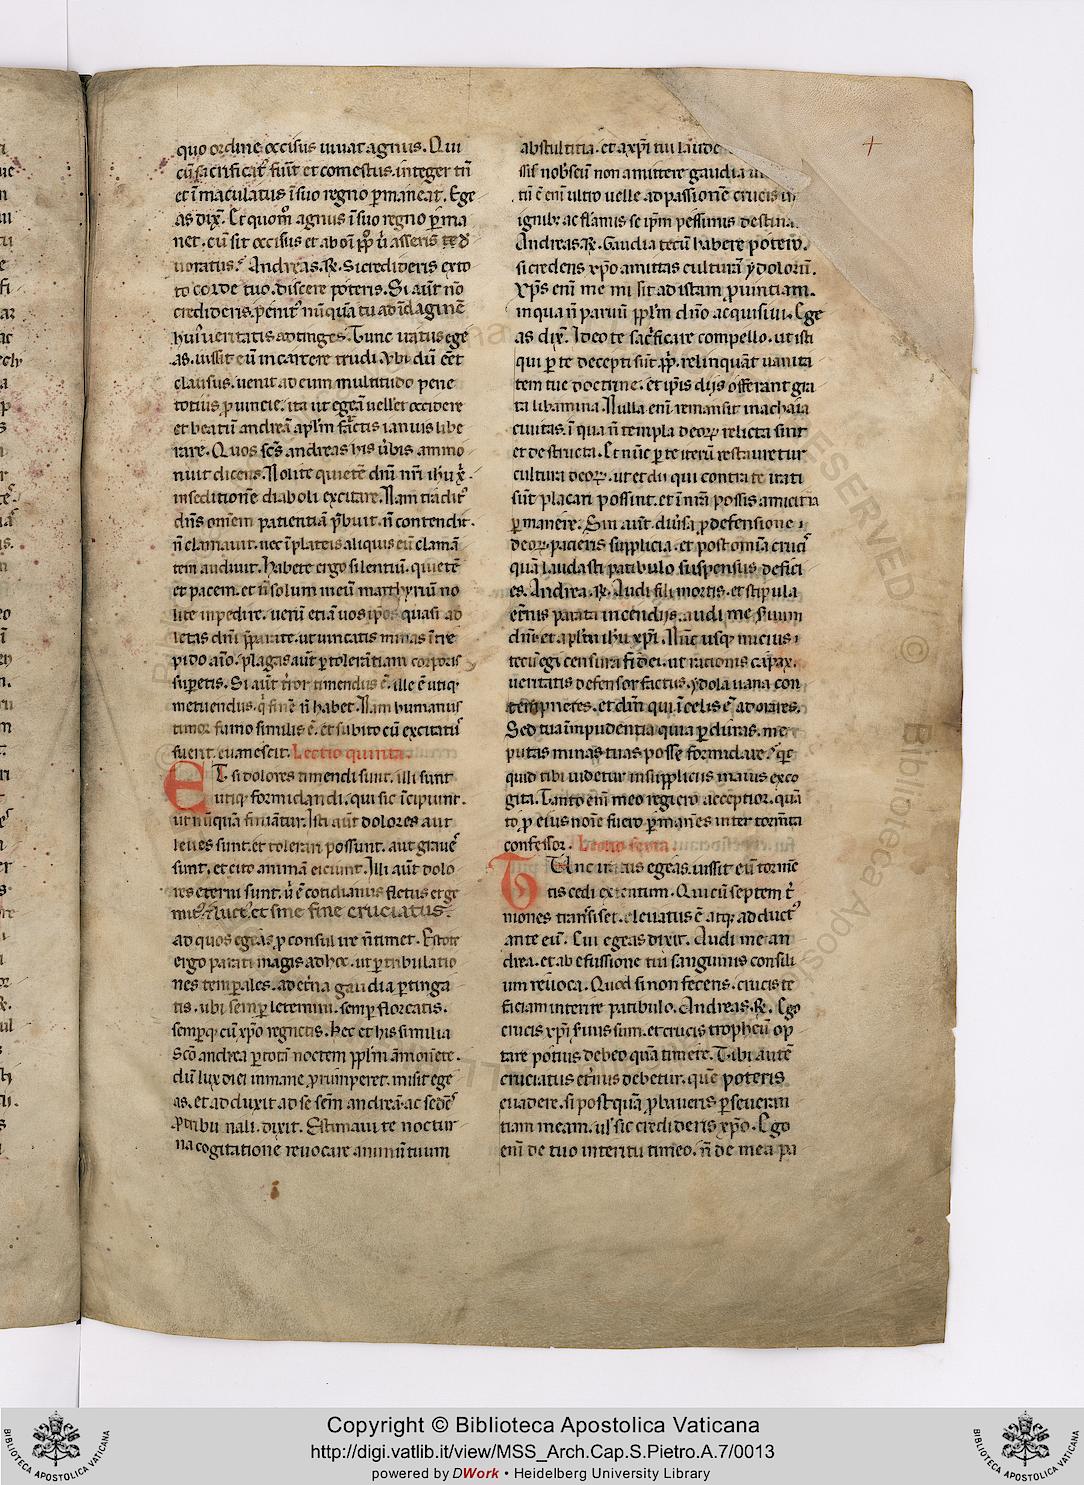 quo ordine occisus uiuat agnus. Qui
cū sacrificatꝰ fuīt et comestus. integer tn̄
et ī maculatus ī suo regno ꝑmaneat. Ege
as dix̄. Et quom̄ agnus ī suo regno ꝑma
net. cū sit occisus et ab oī
uoratus. Andreas. R̄. Si credideris ex to
to corde tuo. discere poteris. Si aūt nō
credideris. penitꝰ nūquā tu ad īdaginē
huiꝰ ueritatis adtinges. Tunc iratus ege
as. iussit eū in carcere trudi. Vbi dū eēt
clausus. uenit ad eum multitudo pene
totius ꝓuincie. ita ut egeā uellet occidere
et beatū andreā apl̄m fractis ianuis libe
rare. Quos sc̄s andreas his ūbis ammo
nuit dicens. Nolite quietē dn̄i nr̄i ih̄u x̄
in seditionē diaboli excitare. Nam traditꝰ
dn̄s omēm patientiā p̄buit. n̄ contendit.
n̄ clamauit. nec ī plateis aliquis eū clamā
tem audiuit. Habete ergo silentiū. quietē
et pacem. et n̄ solum meū marthyriū no
lite inpedire. uerū etiā uos ipōs quasi ad
letas dn̄i p̄parate. ut uincatis minas ītre
pido aīo. plagas aūt ꝑ tolerātiam corporis
suꝑetis. Si aūt tr̄ror timendus ē. ille ē utiq
metuendus. q̄ finē n̄ habet. Nam humanus
timor fumo similis ē. et subito cū excitatꝰ
fuerit. euanescit. Lectio quinta.
ET si dolores timendi sunt. illi sunt
utiq formidandi. qui sic īcipiunt.
ut nūquā finiātur. Isti aūt dolores aut
leues sunt. et tolerari possunt. aut grauēs
sunt. et cito animā eiciunt. Illi aūt dolo
res eterni sunt. ū ē cotidianus fletus et ge
mitꝰ. et luctꝰ. et sine fine cruciatus.
ad quos egeas ꝓconsul ire n̄ timet. Estote
ergo parati magis ad hoc. ut ꝑ tribulatio
nes temꝑales. ad et̄na gaudia ꝑtinga
tis. ubi semꝑ letemini. semꝑ floreatis.
semꝑq cū xp̄o regnetis. Hec et his similia
Sc̄o andrea ꝑ totā noctem pp̄lm āmonēte.
dū lux diei in mane ꝓrumperet. misit ege
as. et adduxit ad se sc̄m andreā. ac sedēs
ꝓ tribunali. dixit. Estimaui te noctur
na cogitatione reuocare animū tuum
ab stultitia. et a xp̄i tui laude
siꝭ nob̄scū non amittere gaudia
tū ē enī ultro uelle ad passionē crucis
ignibꝫ ac flāmis se ipm̄ pessimis destina
Andreas. R̄. Gaudia tecū habere potero.
si credens xp̄o amittas culturā ydolorū.
Xp̄s enī me misit ad istam ꝓuintiam.
in qua n̄ paruū pp̄lm dn̄o acquisiui. Ege
as dix̄. Ideo te sac̄ficare compello. ut isti
qui ꝑ te decepti sūt pp̄. relinquāt uanita
tem tue doctrine. et ip̄is diis offerant gra
ta libamina. Nulla enī remansit in achaia
ciuitas. ī qua n̄ templa deoꝝ relicta sint
et destructa. Et nūc ꝑ te iterū restauretur
cultura deoꝝ. ut et dii qui contra te irati
sūt placari possint. et ī nr̄a possis amicitia
ꝑmanere. Sin aūt. diūsa ꝓ defensione
deoꝝ pacieris supplicia. et post om̄ia cruciꝰ
quā laudasti patibulo suspensus defici
es. Andreas. R̄. Audi fili mortis. et stipula
et̄nis parata incendiis. audi me s̄uum
dn̄i. et apl̄m ih̄u xp̄i. Nūc usq micius
tecū egi censura fidei. ut rationis capax.
ueritatis defensor factus. ydola uana con
tempneres. et dm̄ qui ī celis ē adorares.
Sed tua īmpudentia quia ꝑduras. me
putas minas tuas posse formidare. q̄c
quid tibi uidetur in supplicijs maius exco
gita. Tanto enī meo regi ero acceptior. quā
to ꝓ eius noīe fuero ꝑmanēs inter torm̄ta
confessor. Lectio sexta.
TUnc iratus egeas. iussit eū torm̄e
tis cedi extentum. Qui cū septem t̄
niones transisset. eleuatus ē atq adductꝰ
ante eū. Cui egeas dixit. Audi me an
drea. et ab effusione tui sanguinis consili
um reuoca. Quod si non feceris. crucis te
faciam interire patibulo. Andreas. R̄. Ego
crucis xp̄i s̄uus sum. et crucis tropheū op
tare potius debeo quā timere. Tibi autē
cruciatus et̄nus debetur. quē poteris
euadere. si postquā ꝓbaueris ꝑseueran
tiam meam. ul̄ sic credideris xp̄o. Ego
enī de tuo interitu timeo. n̄ de mea pa
Copyright © Biblioteca Apostolica Vaticana
http://digi.vatlib.it/view/MSS_Arch.Cap.S.Pietro.A.7/0013
powered by DWork • Heidelberg University Library
BIBLIOTECA APOSTOLICA VATICANA
BIBLIOTECA APOSTOLICA VATICANA